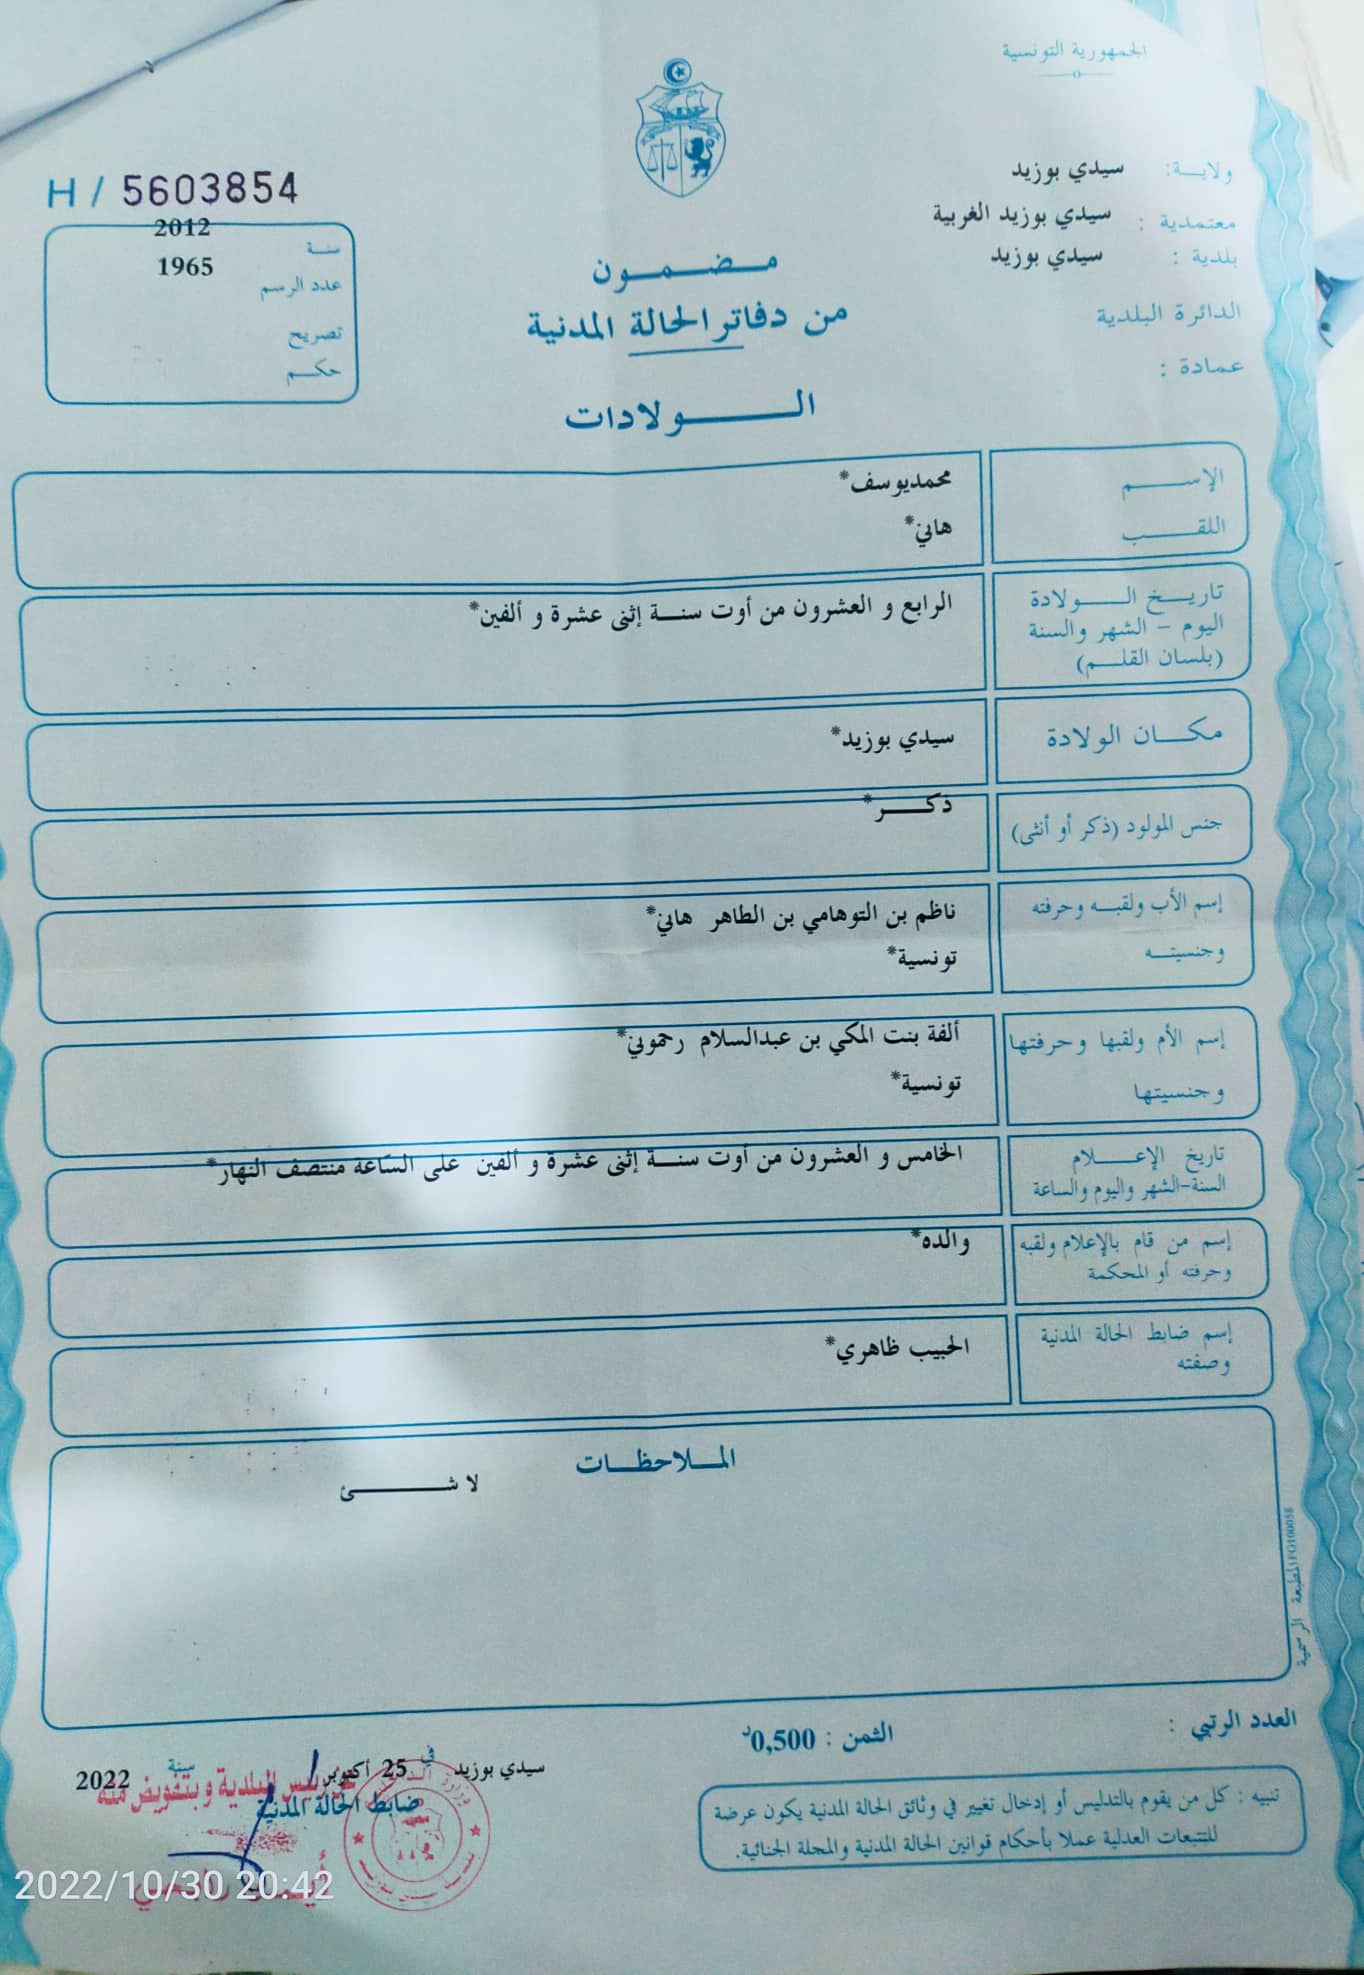 الجمهورية التونسية
ولاية: سيدي بوزيد
معتمدية : سيدي بوزيد الغربية
بلدية : سيدي بوزيد
الدائرة البلدية
عمادة :
H / 5603854
سنة 2012
عدد الرسم 1965
تصريح
حكم
مضمون
من دفاتر الحالة المدنية
الولادات
الإسم محمديوسف*
اللقب هاني*
تاريخ الولادة الرابع و العشرون من أوت سنة إثنى عشرة و ألفين*
اليوم - الشهر والسنة
(بلسان القلم)
مكان الولادة سيدي بوزيد*
جنس المولود (ذكر أو أنثى) ذكر*
إسم الأب ولقبه وحرفته ناظم بن التوهامي بن الطاهر هاني*
وجنسيته تونسية*
إسم الأم ولقبها وحرفتها ألفة بنت المكي بن عبدالسلام رحموني*
وجنسيتها تونسية*
تاريخ الإعلام الخامس و العشرون من أوت سنة إثنى عشرة و ألفين على الساعة منتصف النهار*
السنة-الشهر واليوم والساعة
إسم من قام بالإعلام ولقبه والده*
وحرفته أو المحكمة
إسم ضابط الحالة المدنية الحبيب ظاهري*
وصفته
الملاحظات
لا شئ
المطبعة الرسمية FG100058
العدد الرتبي :
الثمن : 0,500د
سيدي بوزيد في 25 أكتوبر سنة 2022
ضابط الحالة المدنية
رئيس البلدية وبتفويض منه
تنبيه : كل من يقوم بالتدليس أو إدخال تغيير في وثائق الحالة المدنية يكون عرضة
للتتبعات العدلية عملا بأحكام قوانين الحالة المدنية والمجلة الجنائية.
2022/10/30 20:42